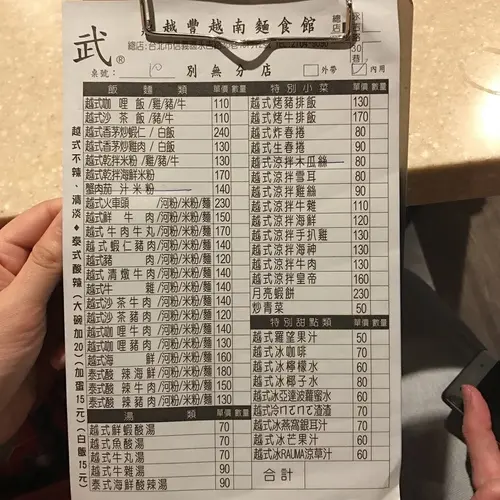 越豐越南麵食館
武®
別無分店
外帶 內用
桌號:
越式不辣、清淡◆泰式酸辣(大碗加20)(加蛋15元)(白飯15元)
飯麵類 單價 數量
越式咖哩飯/雞/豬/牛 110
越式沙茶飯/豬/牛 110
越式香茅炒蝦仁/白飯 240
越式香茅炒雞肉/白飯 130
越式乾拌米粉/雞/豬/牛 130
越式乾拌海鮮米粉 170
蟹肉茄汁米粉 140
越式火車頭/河粉/米粉/麵 230
越式鮮牛肉/河粉/米粉/麵 150
越式牛肉牛丸/河粉/米粉/麵 170
越式蝦仁豬肉/河粉/米粉/麵 140
越式豬肉/河粉/米粉/麵 120
越式清燉牛肉/河粉/米粉/麵 140
越式牛雜/河粉/米粉/麵 140
越式沙茶牛肉/河粉/米粉/麵 140
越式沙茶豬肉/河粉/米粉/麵 120
越式咖哩牛肉/河粉/米粉/麵 140
越式咖哩豬肉/河粉/米粉/麵 130
越式海鮮/河粉/米粉/麵 160
泰式酸辣海鮮/河粉/米粉/麵 180
泰式酸辣牛肉/河粉/米粉/麵 150
泰式酸辣豬肉/河粉/米粉/麵 130
湯類 單價 數量
越式鮮蝦酸湯 70
越式魚酸湯 70
越式牛丸湯 70
越式牛雜湯 90
越式海鮮酸辣湯 90
特別小菜 單價 數量
越式烤豬排飯 130
越式烤牛排飯 170
越式炸春捲 80
越式生春捲 90
越式涼拌木瓜絲 80
越式涼拌雪耳 80
越式涼拌雞絲 90
越式涼拌牛雜 110
越式涼拌海鮮 120
越式涼拌手扒雞 130
越式涼拌海神 130
越式涼拌牛肉 130
越式涼拌皇帝 160
月亮蝦餅 230
炒青菜 50
特別甜點類 單價 數量
越式羅望果汁 50
越式冰咖啡 70
越式冰檸檬水 60
越式冰椰子水 80
越式冰亞達波蘿蜜水 60
越式冷ㄇㄛㄇㄛ渣渣 70
越式冰燕窩銀耳汁 70
越式冰芒果汁 60
越式冰RAUMA涼草汁 60
合計